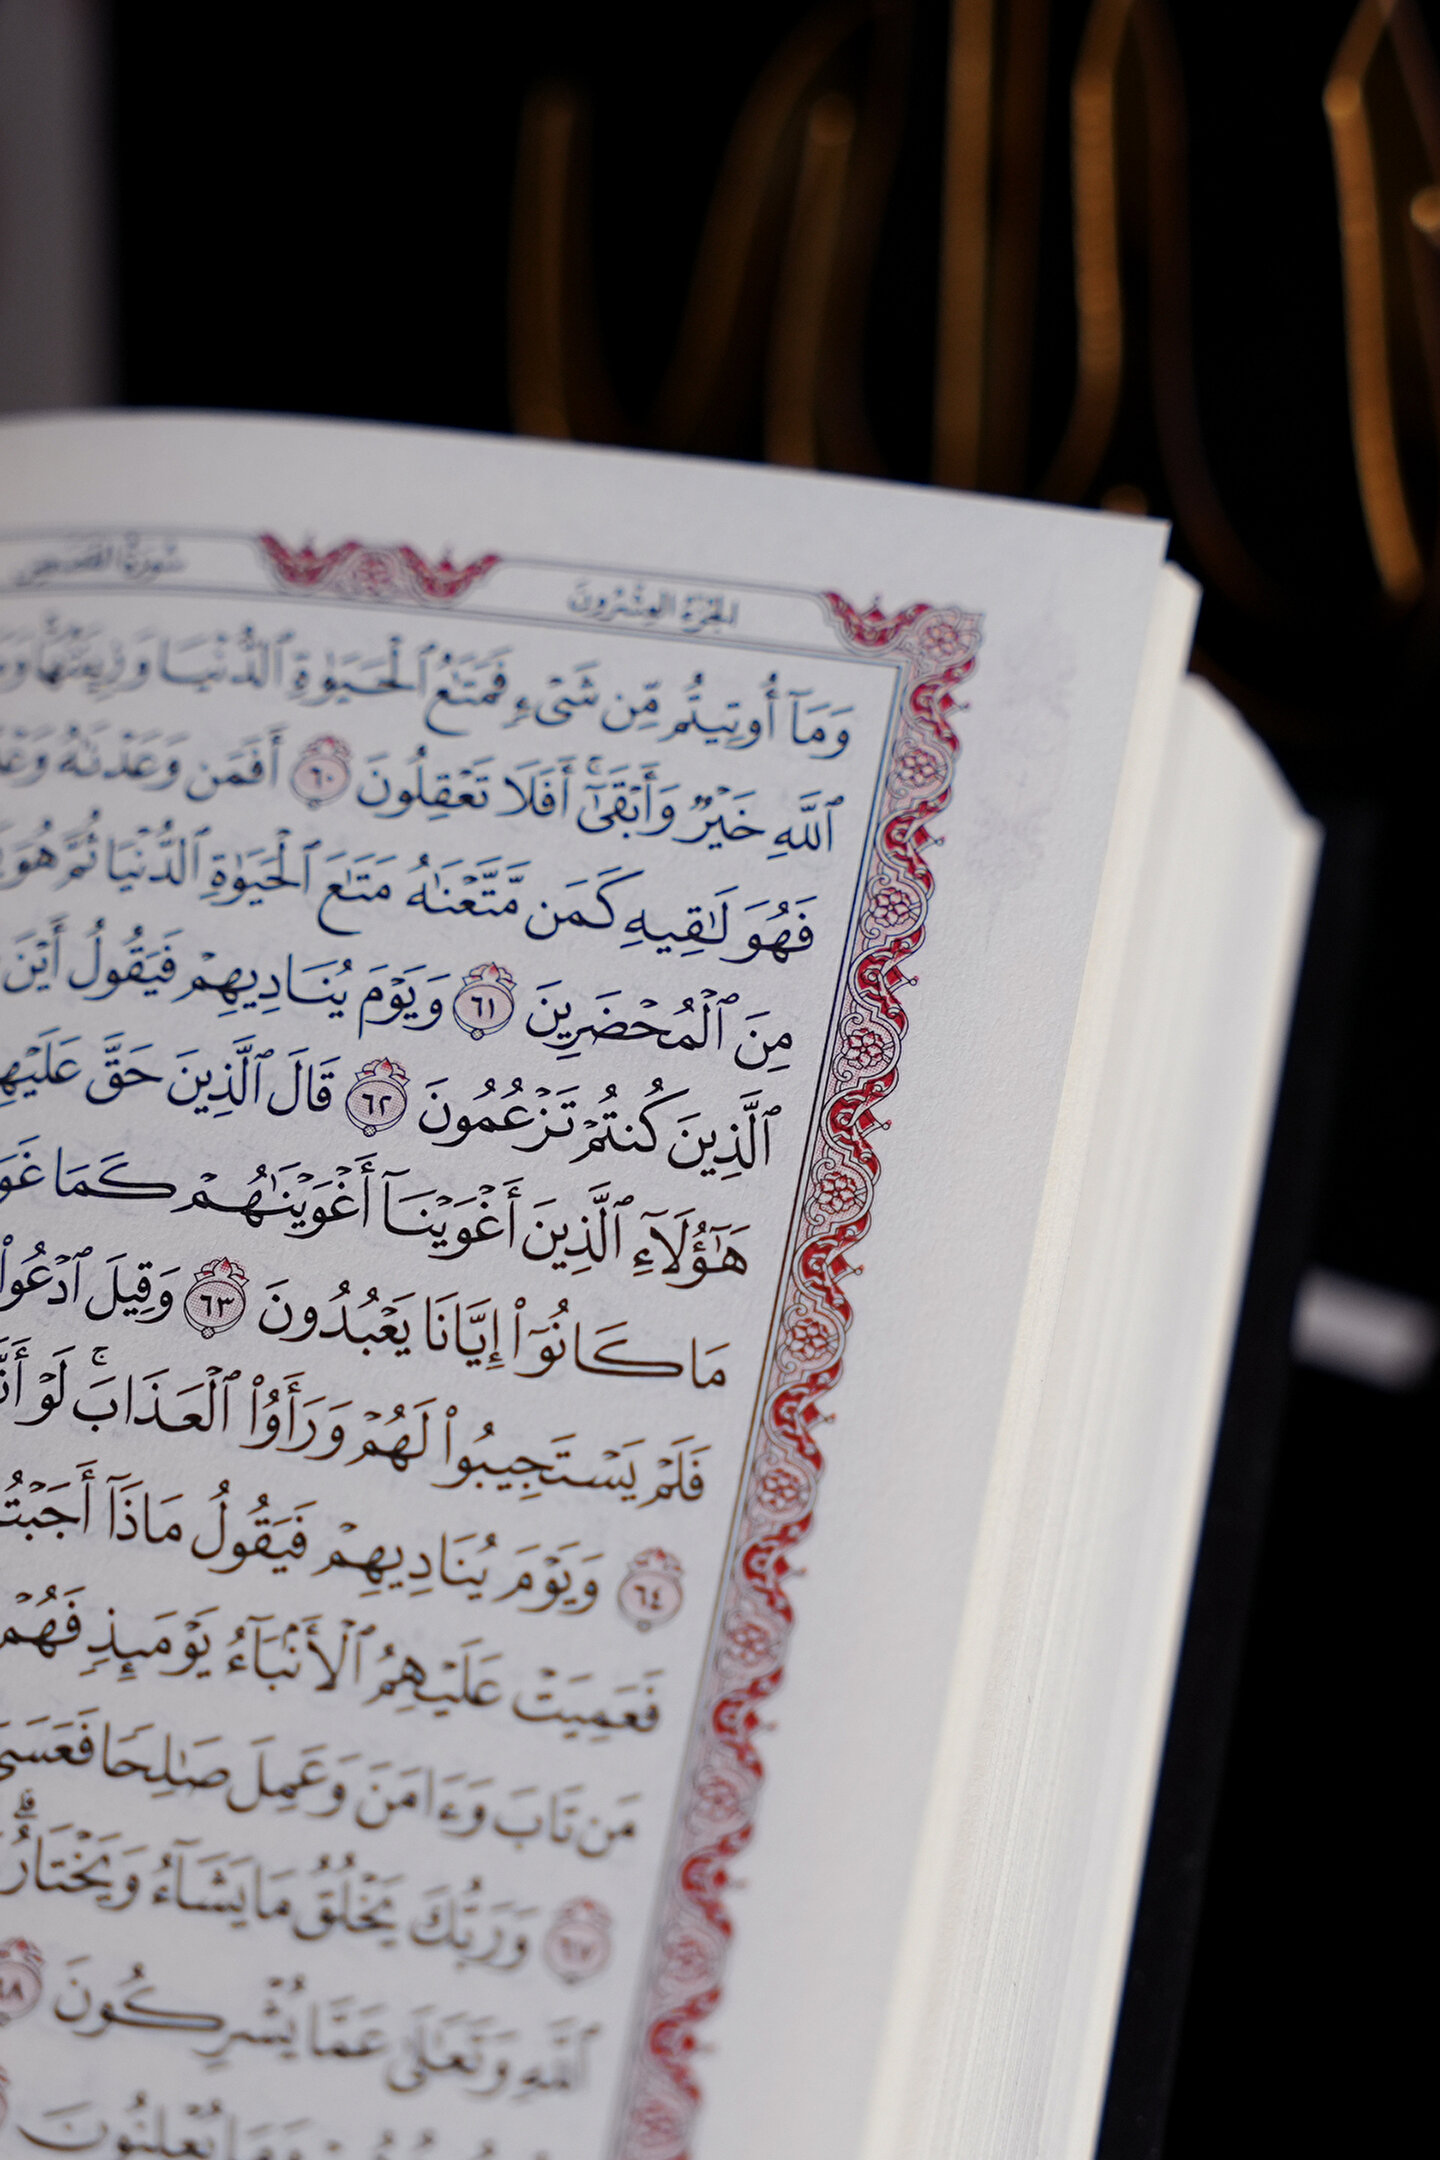 الجُزْءُ العِشْرُونَ سُورَةُ القَصَصِ
وَمَآ أُوتِيتُم مِّن شَىْءٍ فَمَتَٰعُ ٱلْحَيَوٰةِ ٱلدُّنْيَا وَزِينَتُهَا
ٱللَّهِ خَيْرٌ وَأَبْقَىٰٓ ۚ أَفَلَا تَعْقِلُونَ ٦٠ أَفَمَن وَعَدْنَٰهُ
فَهُوَ لَٰقِيهِ كَمَن مَّتَّعْنَٰهُ مَتَٰعَ ٱلْحَيَوٰةِ ٱلدُّنْيَا ثُمَّ هُوَ
مِنَ ٱلْمُحْضَرِينَ ٦١ وَيَوْمَ يُنَادِيهِمْ فَيَقُولُ أَيْنَ
ٱلَّذِينَ كُنتُمْ تَزْعُمُونَ ٦٢ قَالَ ٱلَّذِينَ حَقَّ
هَٰٓؤُلَآءِ ٱلَّذِينَ أَغْوَيْنَآ أَغْوَيْنَٰهُمْ كَمَا
مَا كَانُوٓا۟ إِيَّانَا يَعْبُدُونَ ٦٣ وَقِيلَ ٱدْعُوا۟
فَلَمْ يَسْتَجِيبُوا۟ لَهُمْ وَرَأَوُا۟ ٱلْعَذَابَ ۚ لَوْ
٦٤ وَيَوْمَ يُنَادِيهِمْ فَيَقُولُ مَاذَآ
فَعَمِيَتْ عَلَيْهِمُ ٱلْأَنۢبَآءُ يَوْمَئِذٍ فَهُمْ
مَن تَابَ وَءَامَنَ وَعَمِلَ صَٰلِحًا فَعَسَىٰٓ
٦٧ وَرَبُّكَ يَخْلُقُ مَا يَشَآءُ وَيَخْتَارُ ۗ
ٱللَّهِ وَتَعَٰلَىٰ عَمَّا يُشْرِكُونَ ٦٨
وَمَا يُعْلِنُونَ